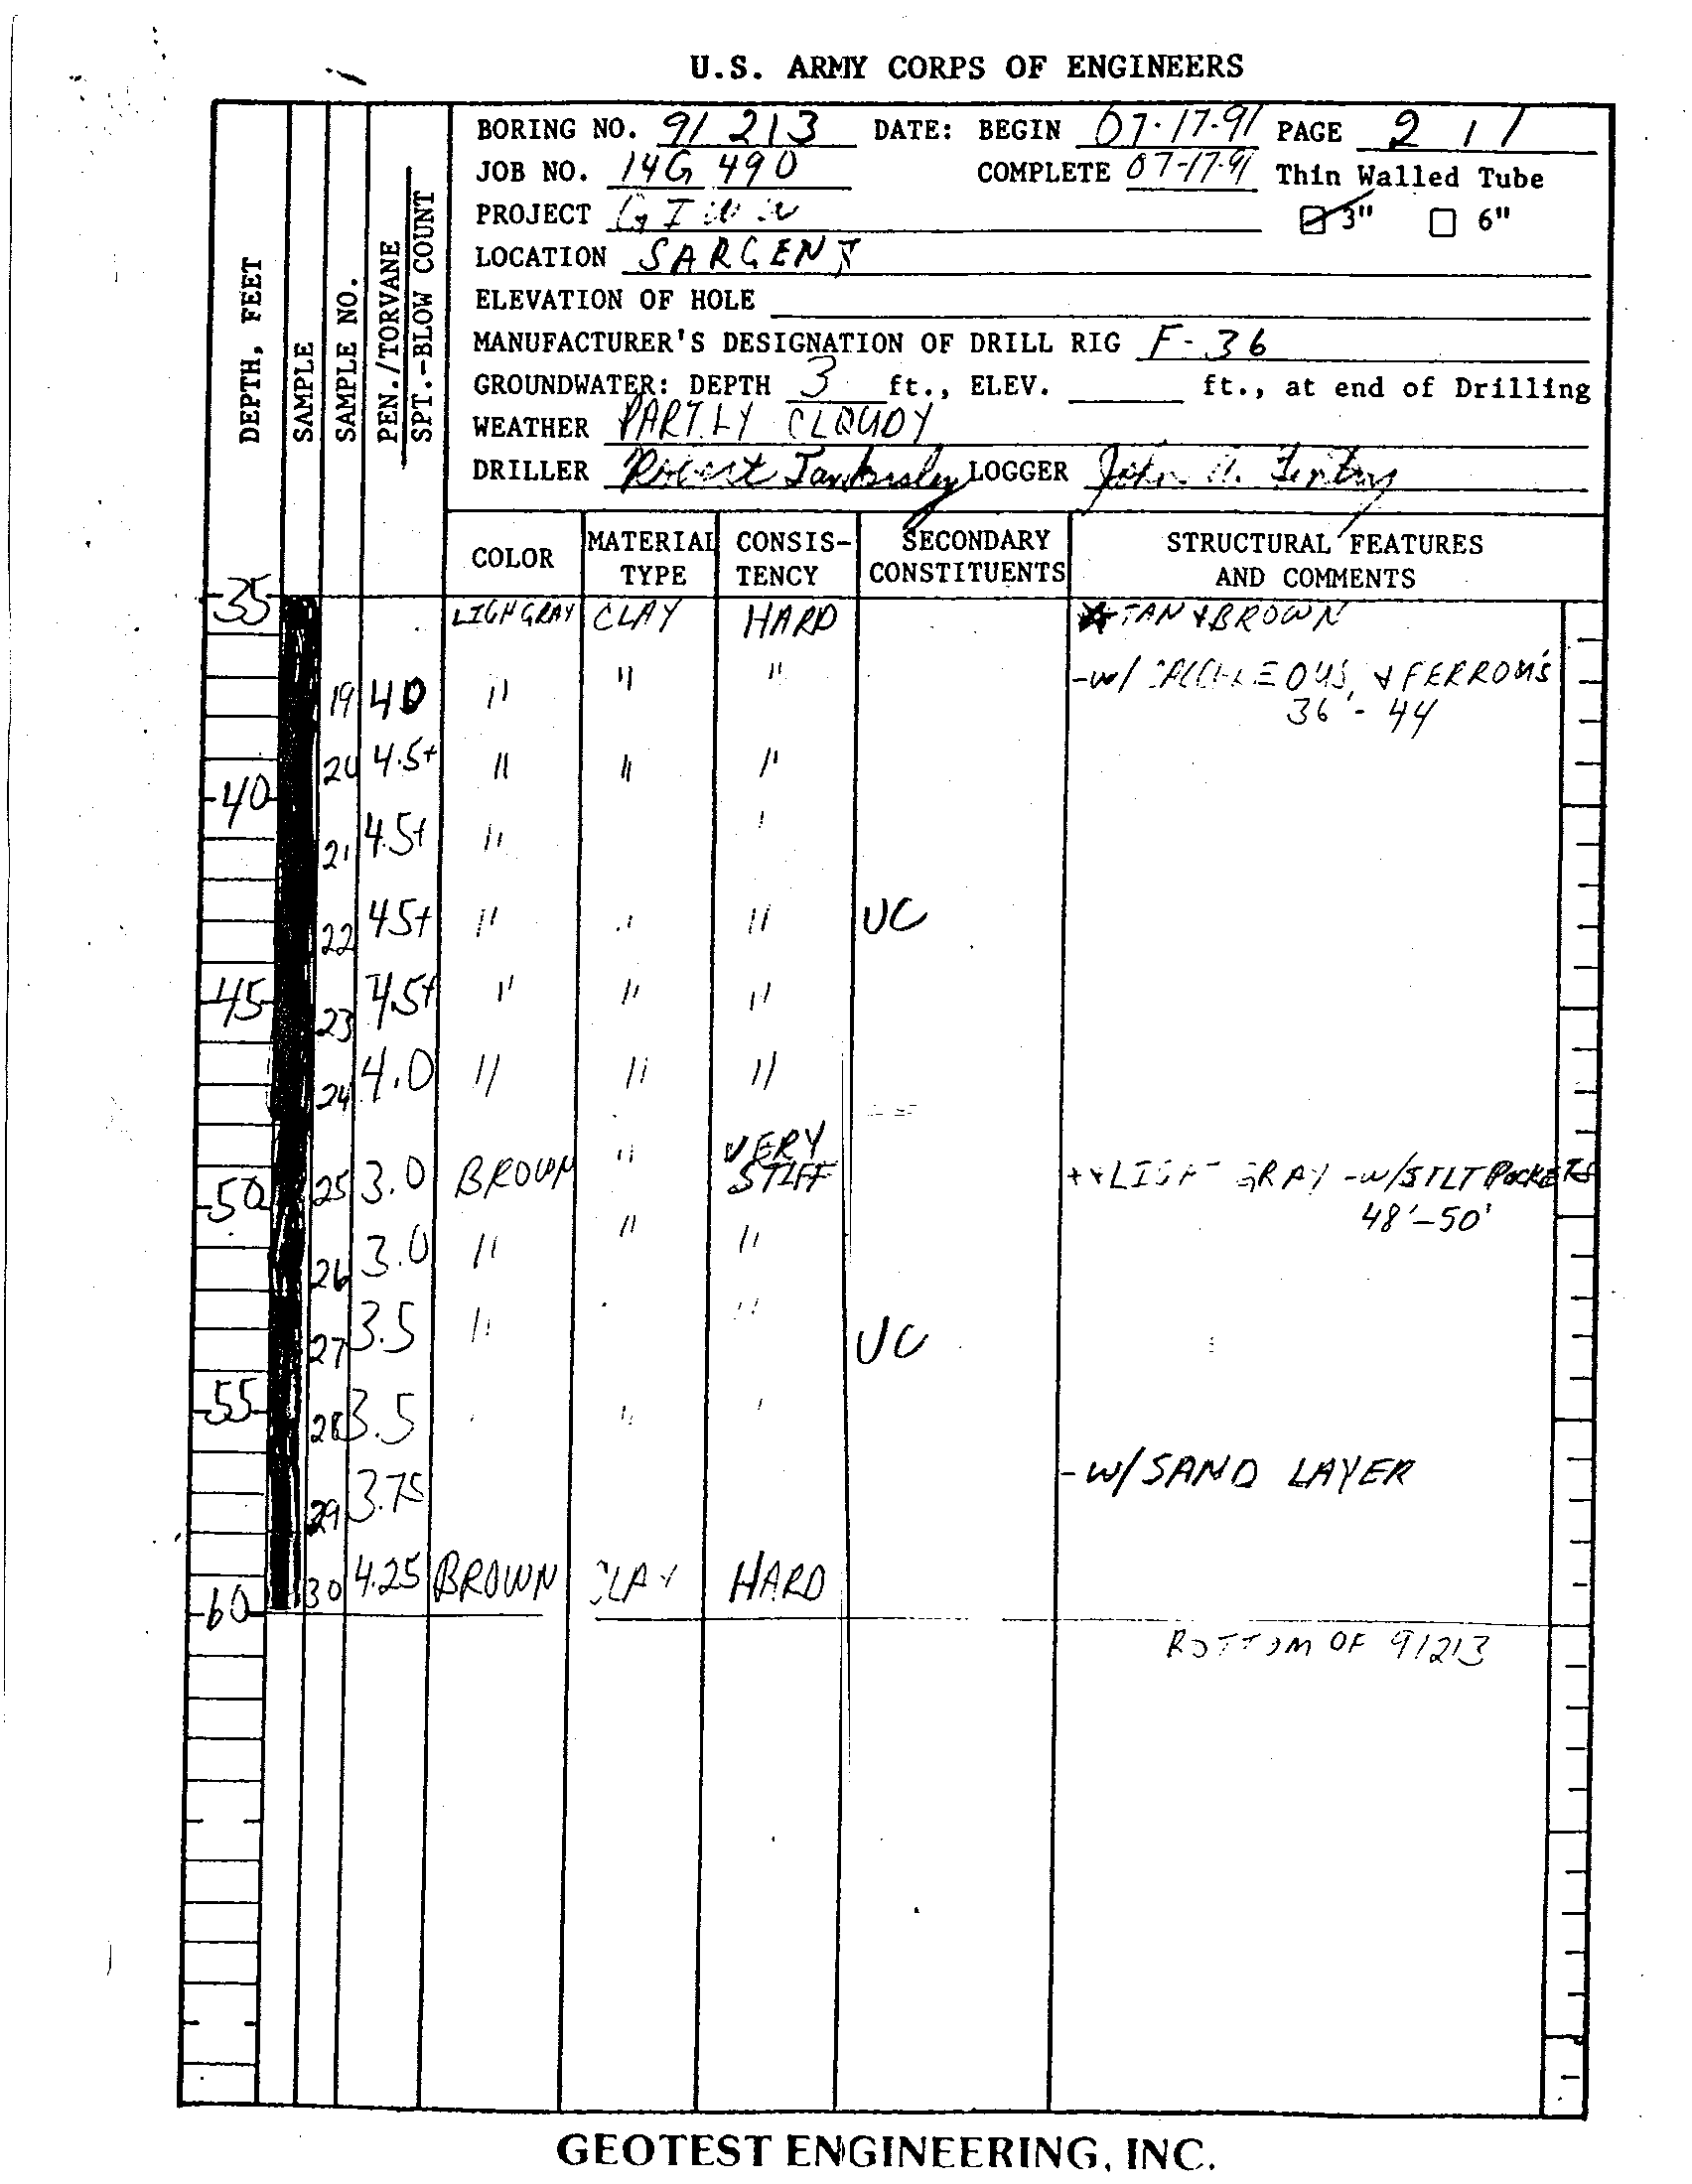 U.S. ARMY CORPS OF ENGINEERS
BORING NO. 91 213 DATE: BEGIN 07-17-91 PAGE 2 / 1
JOB NO. 14G 490 COMPLETE 07-17-91 Thin Walled Tube
PROJECT GIWW 3" 6"
LOCATION SARGENT
ELEVATION OF HOLE
MANUFACTURER'S DESIGNATION OF DRILL RIG F-36
GROUNDWATER: DEPTH 3 ft., ELEV. ft., at end of Drilling
WEATHER PARTLY CLOUDY
DRILLER Robert LOGGER John
DEPTH, FEET
SAMPLE
SAMPLE NO.
PEN./TORVANE
SPT.-BLOW COUNT
COLOR MATERIAL TYPE CONSIS-TENCY SECONDARY CONSTITUENTS STRUCTURAL FEATURES AND COMMENTS
35 LIGHGRAY CLAY HARD * TAN & BROWN
19 4.0 " " " -W/ & FERROUS
36'-44
20 4.5+ " " "
40
21 4.5+ " "
22 4.5+ " " " UC
45
23 4.5+ " " "
24 4.0 " " "
25 3.0 BROWN " VERY STIFF **LIGHT GRAY -W/SILT POCKETS
50 48'-50'
26 3.0 " " "
27 3.5 " " UC
55
28 3.5 " "
29 3.75 -W/SAND LAYER
30 4.25 BROWN CLAY HARD
60
BOTTOM OF 91213
GEOTEST ENGINEERING, INC.